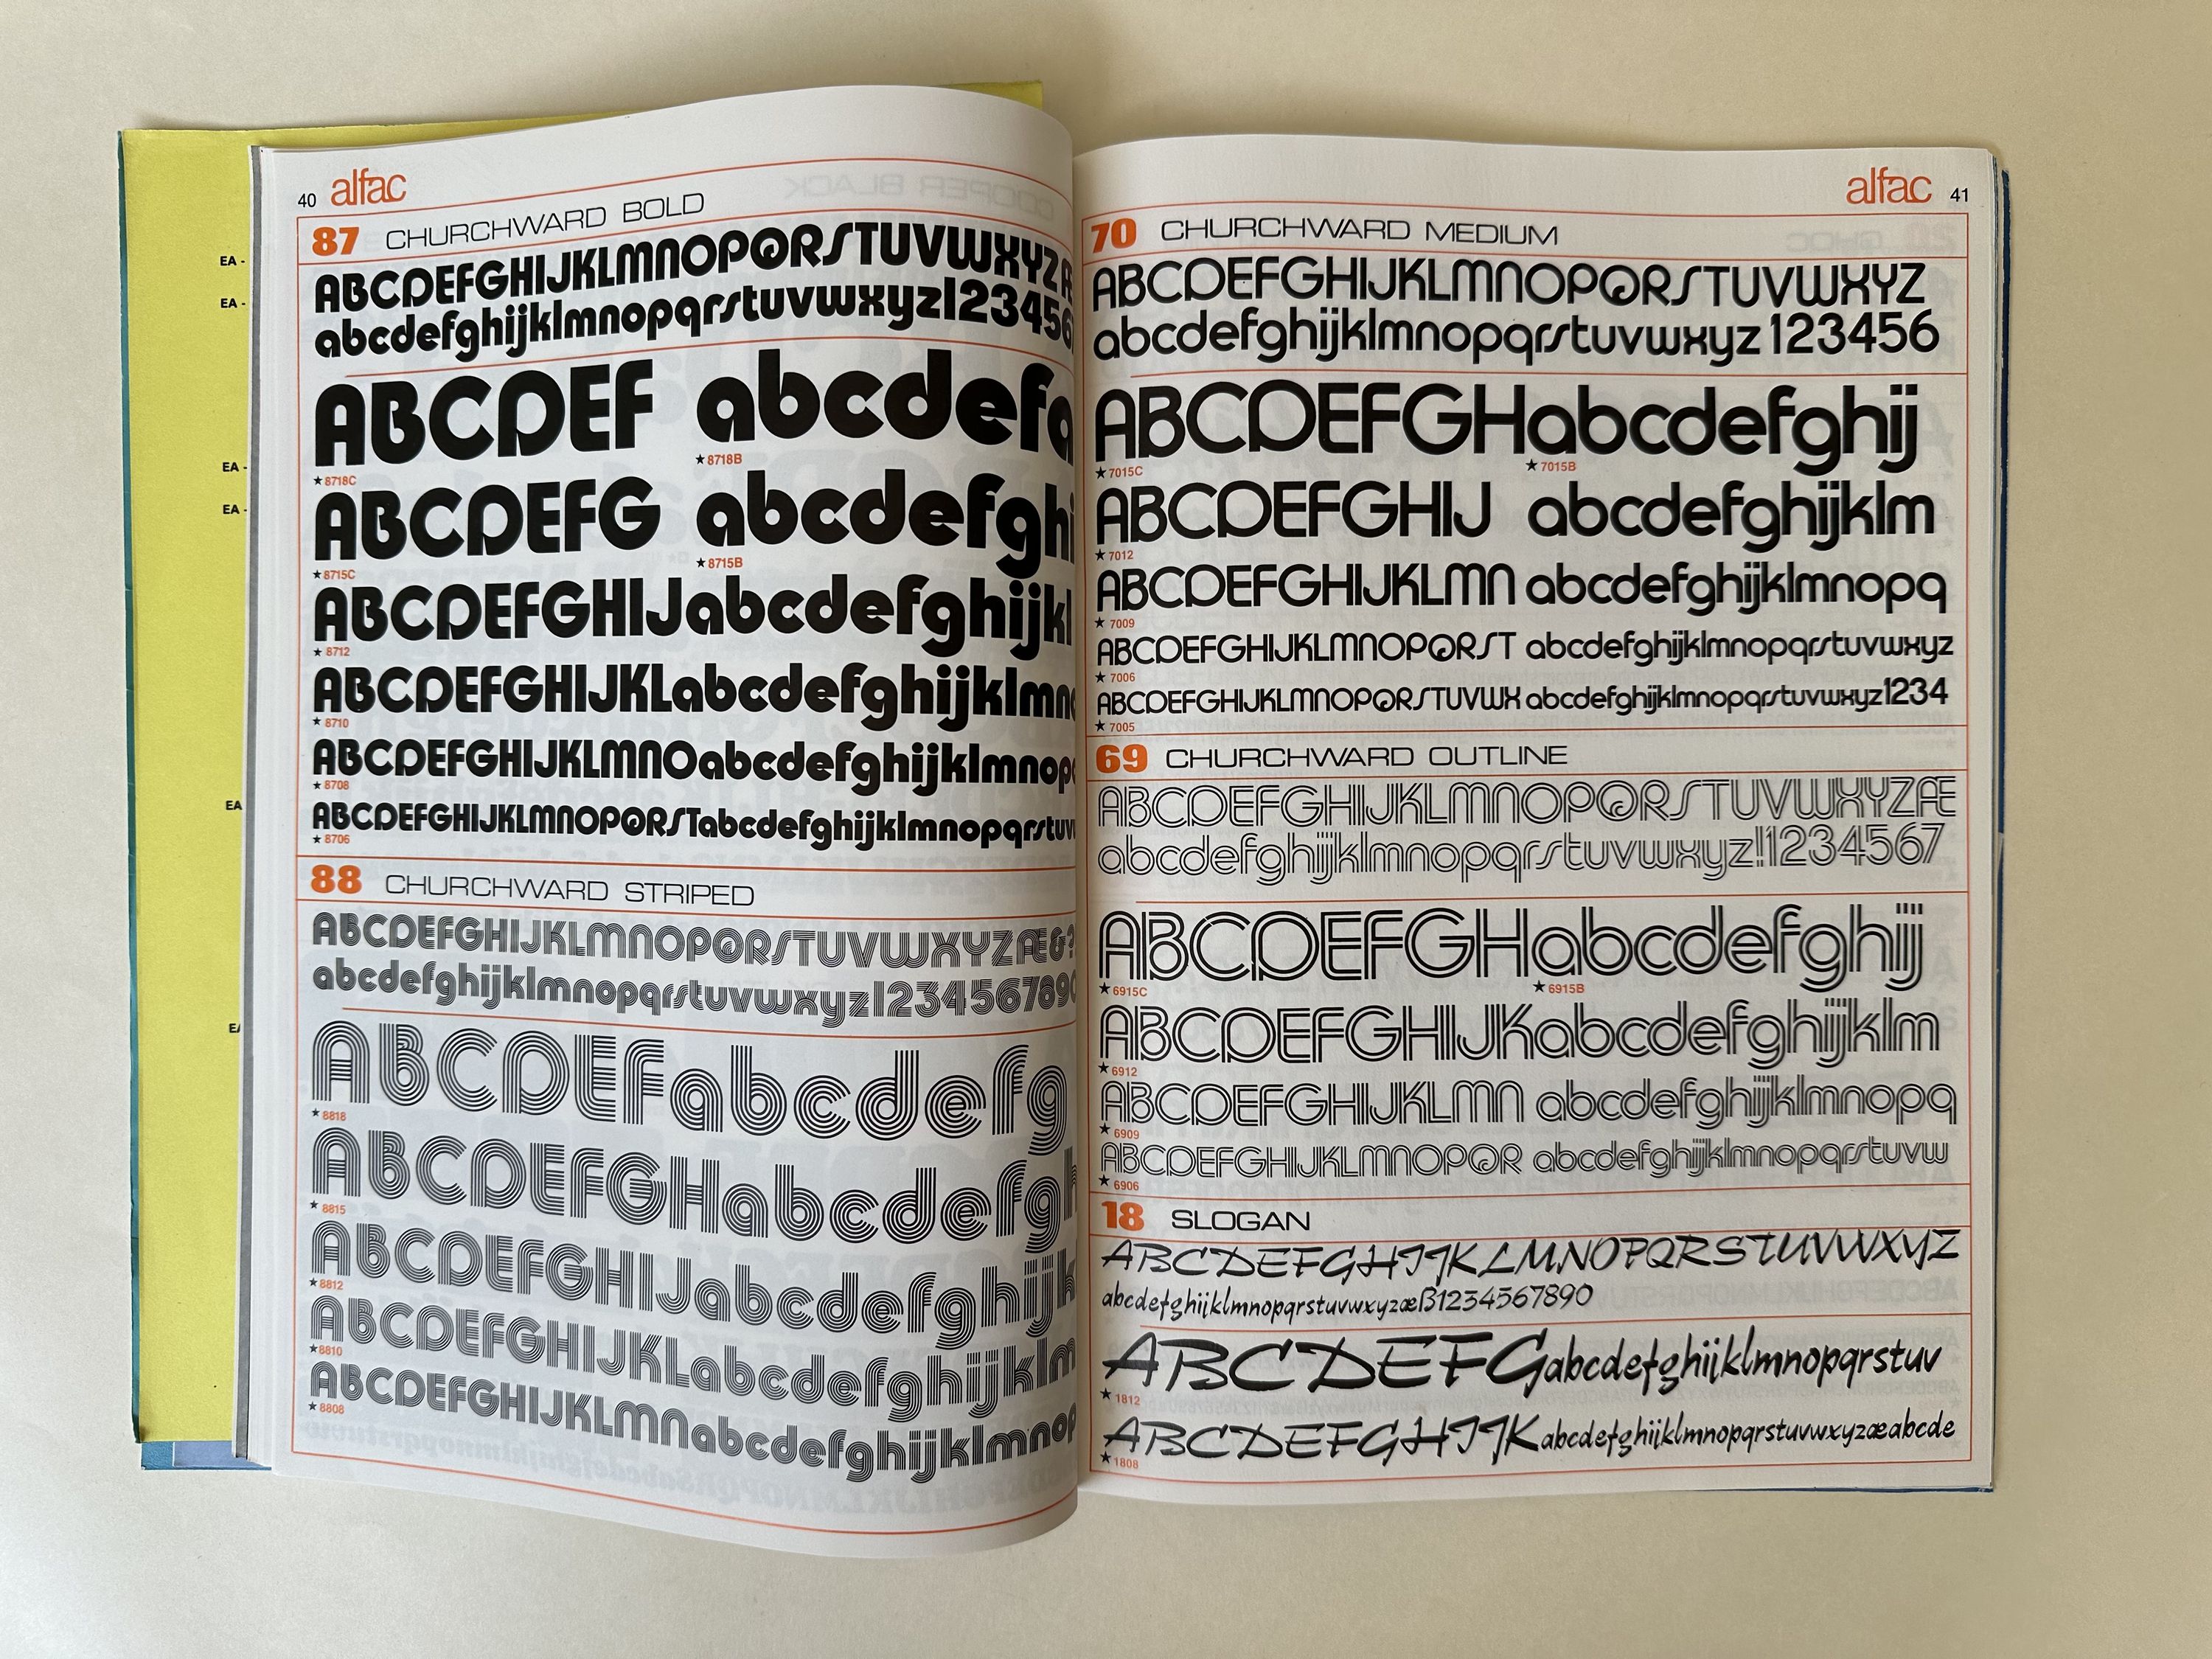 EA -
EA -
EA -
EA -
EA
40 alfac
87 CHURCHWARD BOLD
ABCDEFGHIJKLMNOPQRSTUVWXYZ
abcdefghijklmnopqrstuvwxyz123456
ABCDEF abcdef
★8718C ★8718B
ABCDEFG abcdefghi
★8715C ★8715B
ABCDEFGHIJabcdefghijkl
★8712
ABCDEFGHIJKLabcdefghijklmn
★8710
ABCDEFGHIJKLMNOabcdefghijklmnop
★8708
ABCDEFGHIJKLMNOPQRSTabcdefghijklmnopqrstuv
★8706
88 CHURCHWARD STRIPED
ABCDEFGHIJKLMNOPQRSTUVWXYZÆ&?
abcdefghijklmnopqrstuvwxyz1234567890
ABCDEFabcdefg
★8818
ABCDEFGHabcdefgh
★8815
ABCDEFGHIJabcdefghijk
★8812
ABCDEFGHIJKLabcdefghijklm
★8810
ABCDEFGHIJKLMNabcdefghijklmnop
★8808
alfac 41
70 CHURCHWARD MEDIUM
ABCDEFGHIJKLMNOPQRSTUVWXYZ
abcdefghijklmnopqrstuvwxyz 123456
ABCDEFGHabcdefghij
★7015C ★7015B
ABCDEFGHIJ abcdefghijklm
★7012
ABCDEFGHIJKLMN abcdefghijklmnopq
★7009
ABCDEFGHIJKLMNOPQRST abcdefghijklmnopqrstuvwxyz
★7006
ABCDEFGHIJKLMNOPQRSTUVWX abcdefghijklmnopqrstuvwxyz1234
★7005
69 CHURCHWARD OUTLINE
ABCDEFGHIJKLMNOPQRSTUVWXYZÆ
abcdefghijklmnopqrstuvwxyz!1234567
ABCDEFGHabcdefghij
★6915C ★6915B
ABCDEFGHIJKabcdefghijklm
★6912
ABCDEFGHIJKLMN abcdefghijklmnopq
★6909
ABCDEFGHIJKLMNOPQR abcdefghijklmnopqrstuvw
★6906
18 SLOGAN
ABCDEFGHIJKLMNOPQRSTUVWXYZ
abcdefghijklmnopqrstuvwxyzæß1234567890
ABCDEFGabcdefghijklmnopqrstuv
★1812
ABCDEFGHIJKabcdefghijklmnopqrstuvwxyzæabcde
★1808